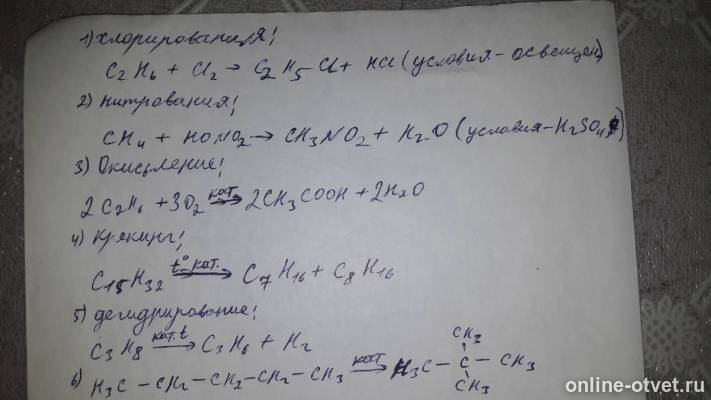 1) хлорирования!
C2H6 + Cl2 → C2H5Cl + HCl (условия - освещен)
2) нитрования!
CH4 + HONO2 → CH3NO2 + H2O (условия - H2SO4)
3) Окисьление!
2C2H6 + 3O2 кат. → 2CH3COOH + 2H2O
4) крякинг!
C15H32 t° кат. → C7H16 + C8H16
5) дегидрирование!
C3H8 кат. t → C3H6 + H2
CH3
6) H3C - CH2 - CH2 - CH2 - CH3 кат → H3C - C - CH3
CH3
online-otvet.ru